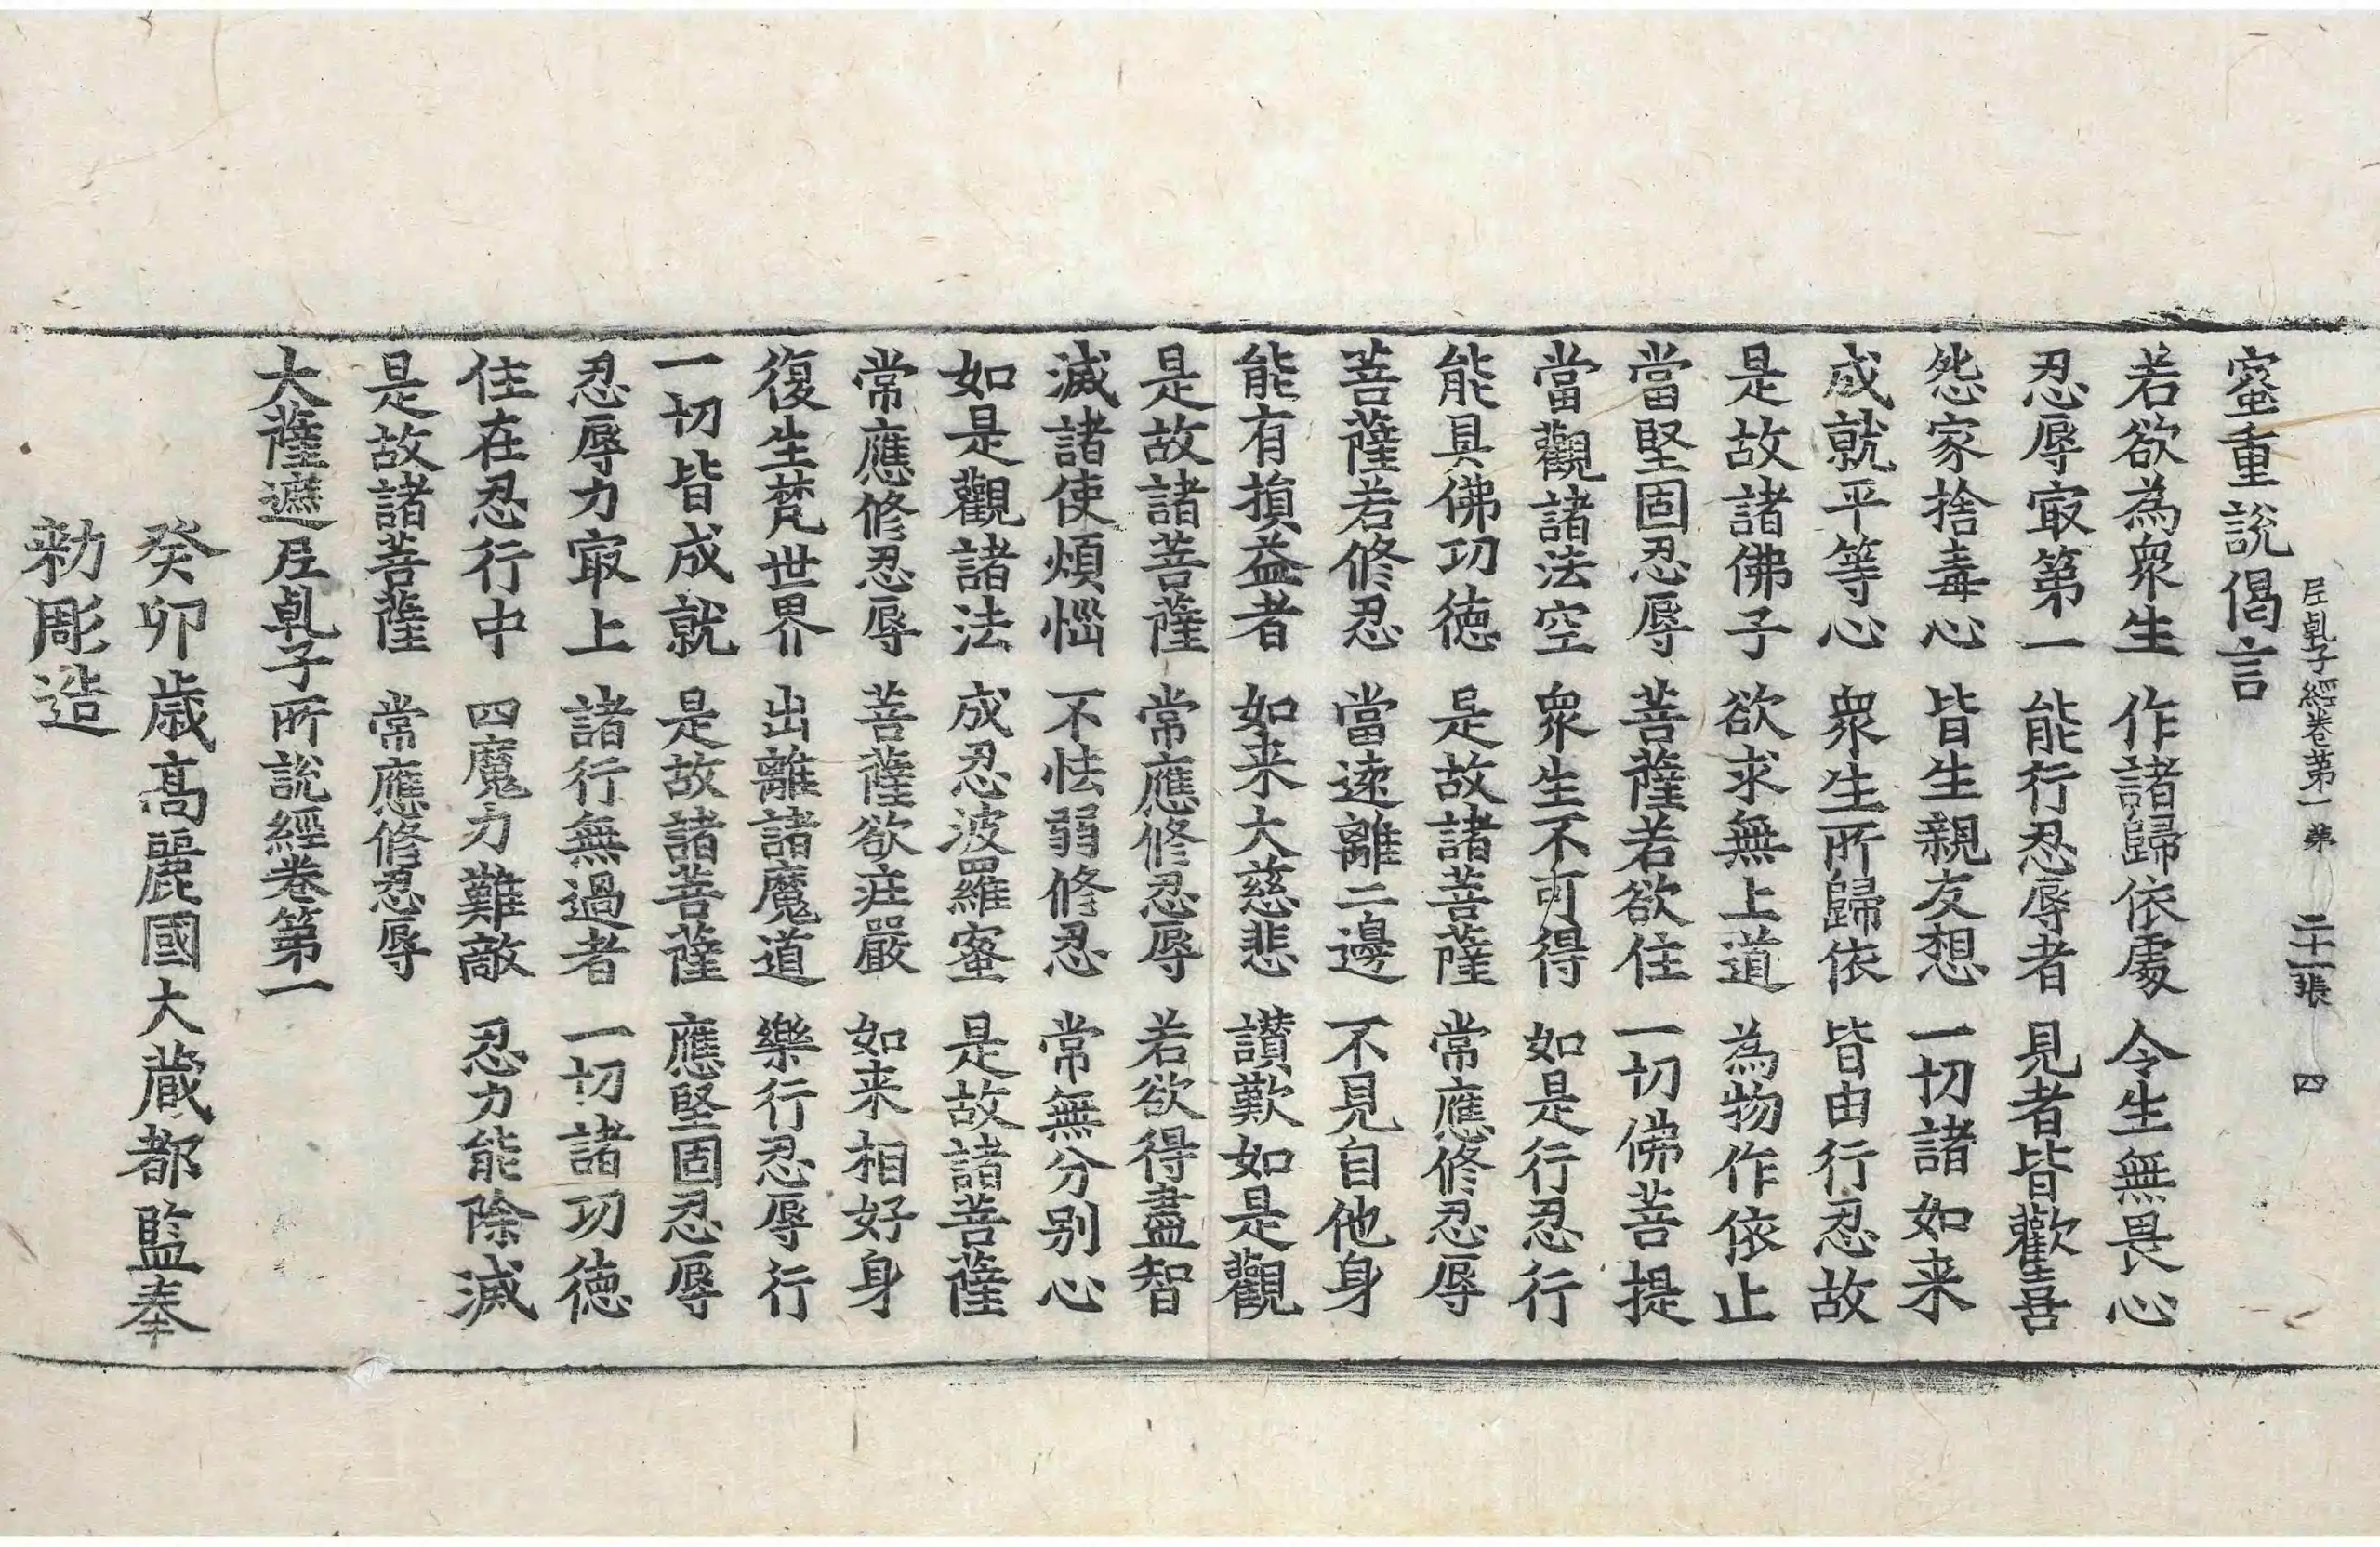 尼乹子經卷苐一 苐二十一張 四
蜜重說偈言
若欲為衆生 作諸歸依處 令生無畏心
忍辱冣第一 能行忍辱者 見者皆歡喜
怨家捨毒心 皆生親友想 一切諸如来
成就平等心 衆生所歸依 皆由行忍故
是故諸佛子 欲求無上道 為物作依止
當堅固忍辱 菩薩若欲住 一切佛菩提
當觀諸法空 衆生不可得 如是行忍行
能具佛功徳 是故諸菩薩 常應修忍辱
菩薩若修忍 當遠離二邊 不見自他身
能有損益者 如来大慈悲 讃歎如是觀
是故諸菩薩 常應修忍辱 若欲得盡智
滅諸使煩惱 不怯弱修忍 常無分別心
如是觀諸法 成忍波羅蜜 是故諸菩薩
常應修忍辱 菩薩欲莊嚴 如来相好身
復生梵世界 出離諸魔道 樂行忍辱行
一切皆成就 是故諸菩薩 應堅固忍辱
忍辱力冣上 諸行無過者 一切諸功徳
住在忍行中 四魔力難敵 忍力能除滅
是故諸菩薩 常應修忍辱
大薩遮尼乹子所說經卷第一
癸卯歳髙麗國大蔵都監奉
勑彫造